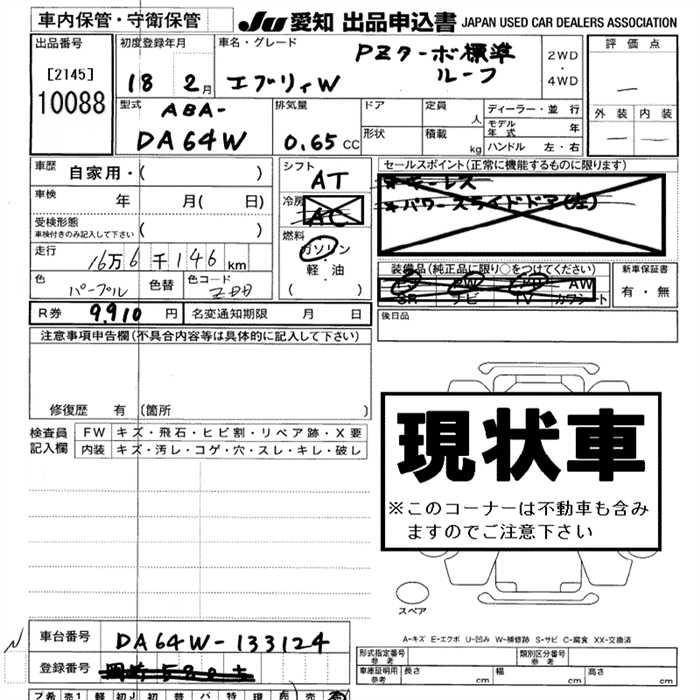 車内保管・守衛保管
JU 愛知 出品申込書 JAPAN USED CAR DEALERS ASSOCIATION
出品番号
[2145]
10088
初度登録年月
18 2月
車名・グレード
エブリィW
PZターボ標準
ルーフ
2WD
・
4WD
評価点
―
外装 内装
― ―
型式
ABA-
DA64W
排気量
0.65 CC
ドア
形状
定員 人
積載 kg
ディーラー・並行
モデル年式 年
ハンドル 左・右
車歴 自家用・( )
車検 年 月( 日)
受検形態
車検付きのみ記入して下さい ( )
走行
16万6千146km
色
パープル
色替
色コード
シフト
AT
冷房
AC
燃料
ガソリン
・
軽・油
( )
セールスポイント(正常に機能するものに限ります)
*キーレス
*パワースライドドア(左)
装備品(純正品に限り○をつけてください)
PS PW AW
SR ナビ TV カワシート
新車保証書
有・無
R券 9,910円
名変通知期限 月 日
後日品
注意事項申告欄(不具合内容等は具体的に記入して下さい)
修復歴 有(箇所 )
検査員記入欄
FW キズ・飛石・ヒビ割・リペア跡・X要
内装 キズ・汚レ・コゲ・穴・スレ・キレ・破レ
現状車
※このコーナーは不動車も含み
ますのでご注意下さい
スペア
A-キズ E-エクボ U-凹み W-補修跡 S-サビ C-腐食 XX-交換済
車台番号 DA64W-133124
登録番号
形式指定番号
参考
類別区分番号
参考
車庫証明用
参考
長さ cm
幅 cm
高さ cm